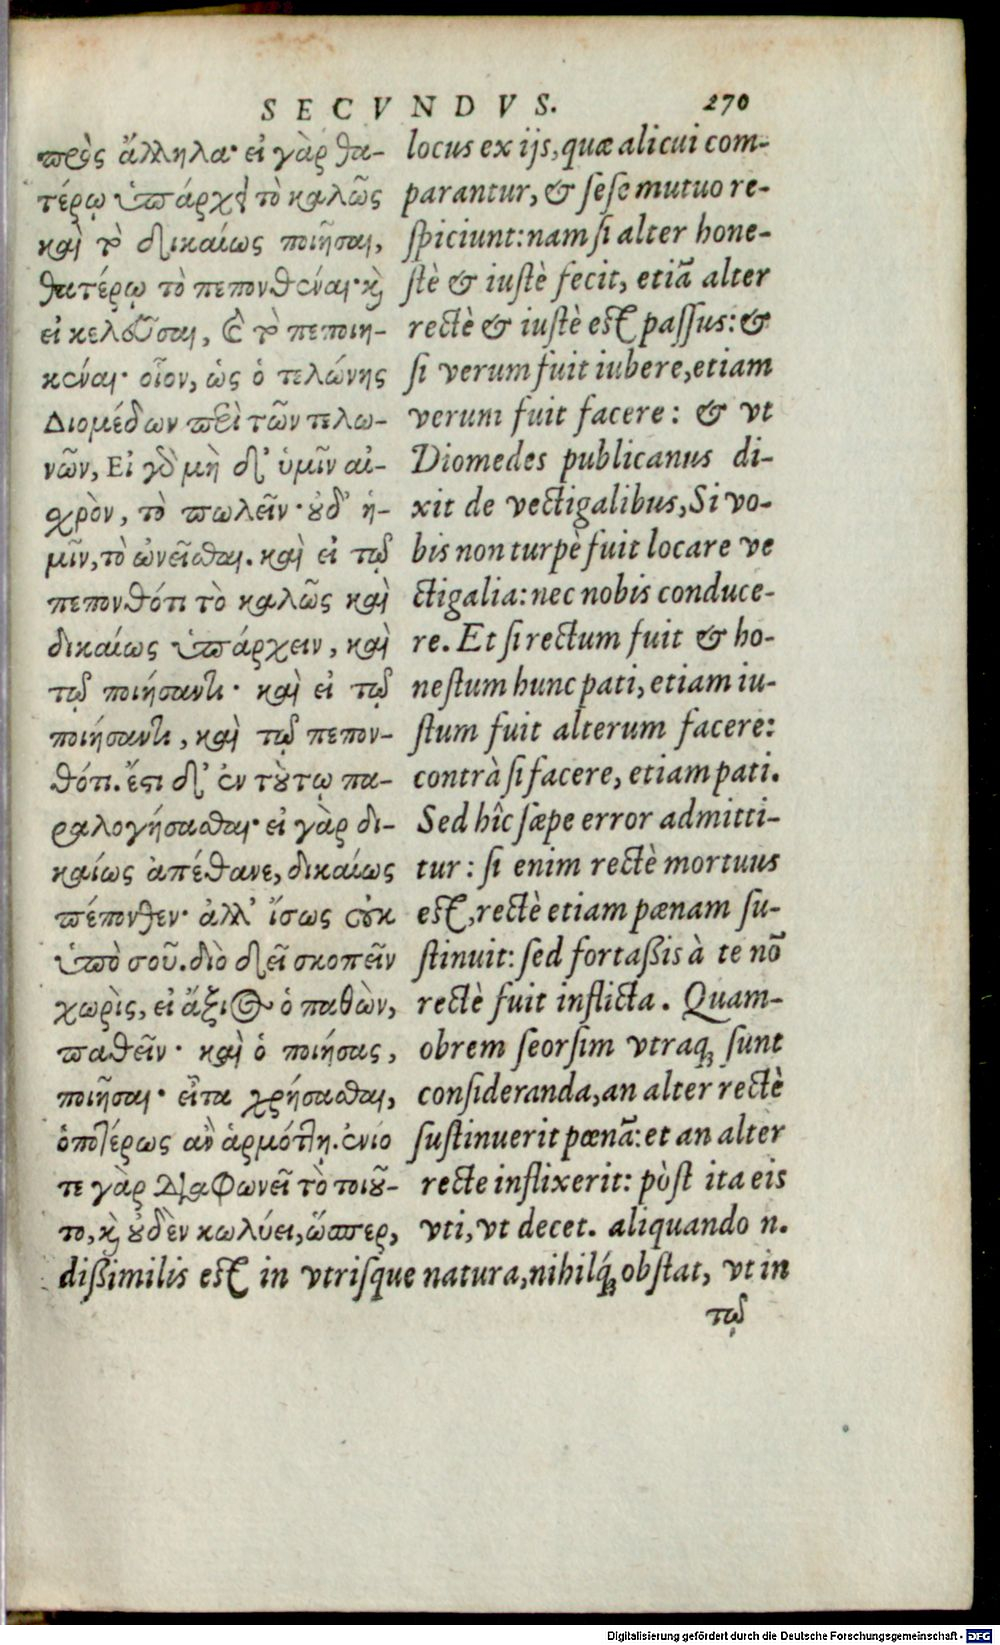 SECVNDVS. 270
πρὸς ἄλληλα· εἰ γὰρ θα-
τέρῳ ὑπάρχει τὸ καλῶς
καὶ τὸ δικαίως ποιῆσαι,
θατέρῳ τὸ πεπονθέναι· καὶ
εἰ κελεῦσαι, καὶ τὸ πεποιη-
κέναι· οἷον, ὡς ὁ τελώνης
Διομέδων περὶ τῶν τελω-
νῶν, Εἰ γὰρ μὴ δ' ὑμῖν αἰ-
σχρὸν, τὸ πωλεῖν· οὐδ' ἡ-
μῖν, τὸ ὠνεῖσθαι. καὶ εἰ τῷ
πεπονθότι τὸ καλῶς καὶ
δικαίως ὑπάρχειν, καὶ
τῷ ποιήσαντι· καὶ εἰ τῷ
ποιήσαντι, καὶ τῷ πεπον-
θότι. ἔστι δ' ἐν τούτῳ πα-
ραλογήσασθαι· εἰ γὰρ δι-
καίως ἀπέθανε, δικαίως
πέπονθεν· ἀλλ' ἴσως οὐκ
ὑπὸ σοῦ. διὸ δεῖ σκοπεῖν
χωρὶς, εἰ ἄξιος ὁ παθὼν,
παθεῖν· καὶ ὁ ποιήσας,
ποιῆσαι· εἶτα χρήσασθαι,
ὁποτέρως ἂν ἁρμόττῃ. ἐνίο
τε γὰρ διαφωνεῖ τὸ τοιοῦ-
το, καὶ οὐδὲν κωλύει, ὥσπερ,
locus ex ijs, quæ alicui com-
parantur, & sese mutuo re-
spiciunt: nam si alter hone-
stè & iustè fecit, etiã alter
rectè & iustè est passus: &
si verum fuit iubere, etiam
verum fuit facere: & vt
Diomedes publicanus di-
xit de vectigalibus, Si vo-
bis non turpè fuit locare ve
ctigalia: nec nobis conduce-
re. Et si rectum fuit & ho-
nestum hunc pati, etiam iu-
stum fuit alterum facere:
contrà si facere, etiam pati.
Sed hîc sæpe error admitti-
tur: si enim rectè mortuus
est, rectè etiam pænam su-
stinuit: sed fortaßis à te nõ
rectè fuit inflicta. Quam-
obrem seorsim vtraq; sunt
consideranda, an alter rectè
sustinuerit pœnã: et an alter
recte inflixerit: pòst ita eis
vti, vt decet. aliquando n.
dißimilis est in vtrisque natura, nihilq́; obstat, vt in
τῷ
Digitalisierung gefördert durch die Deutsche Forschungsgemeinschaft - DFG